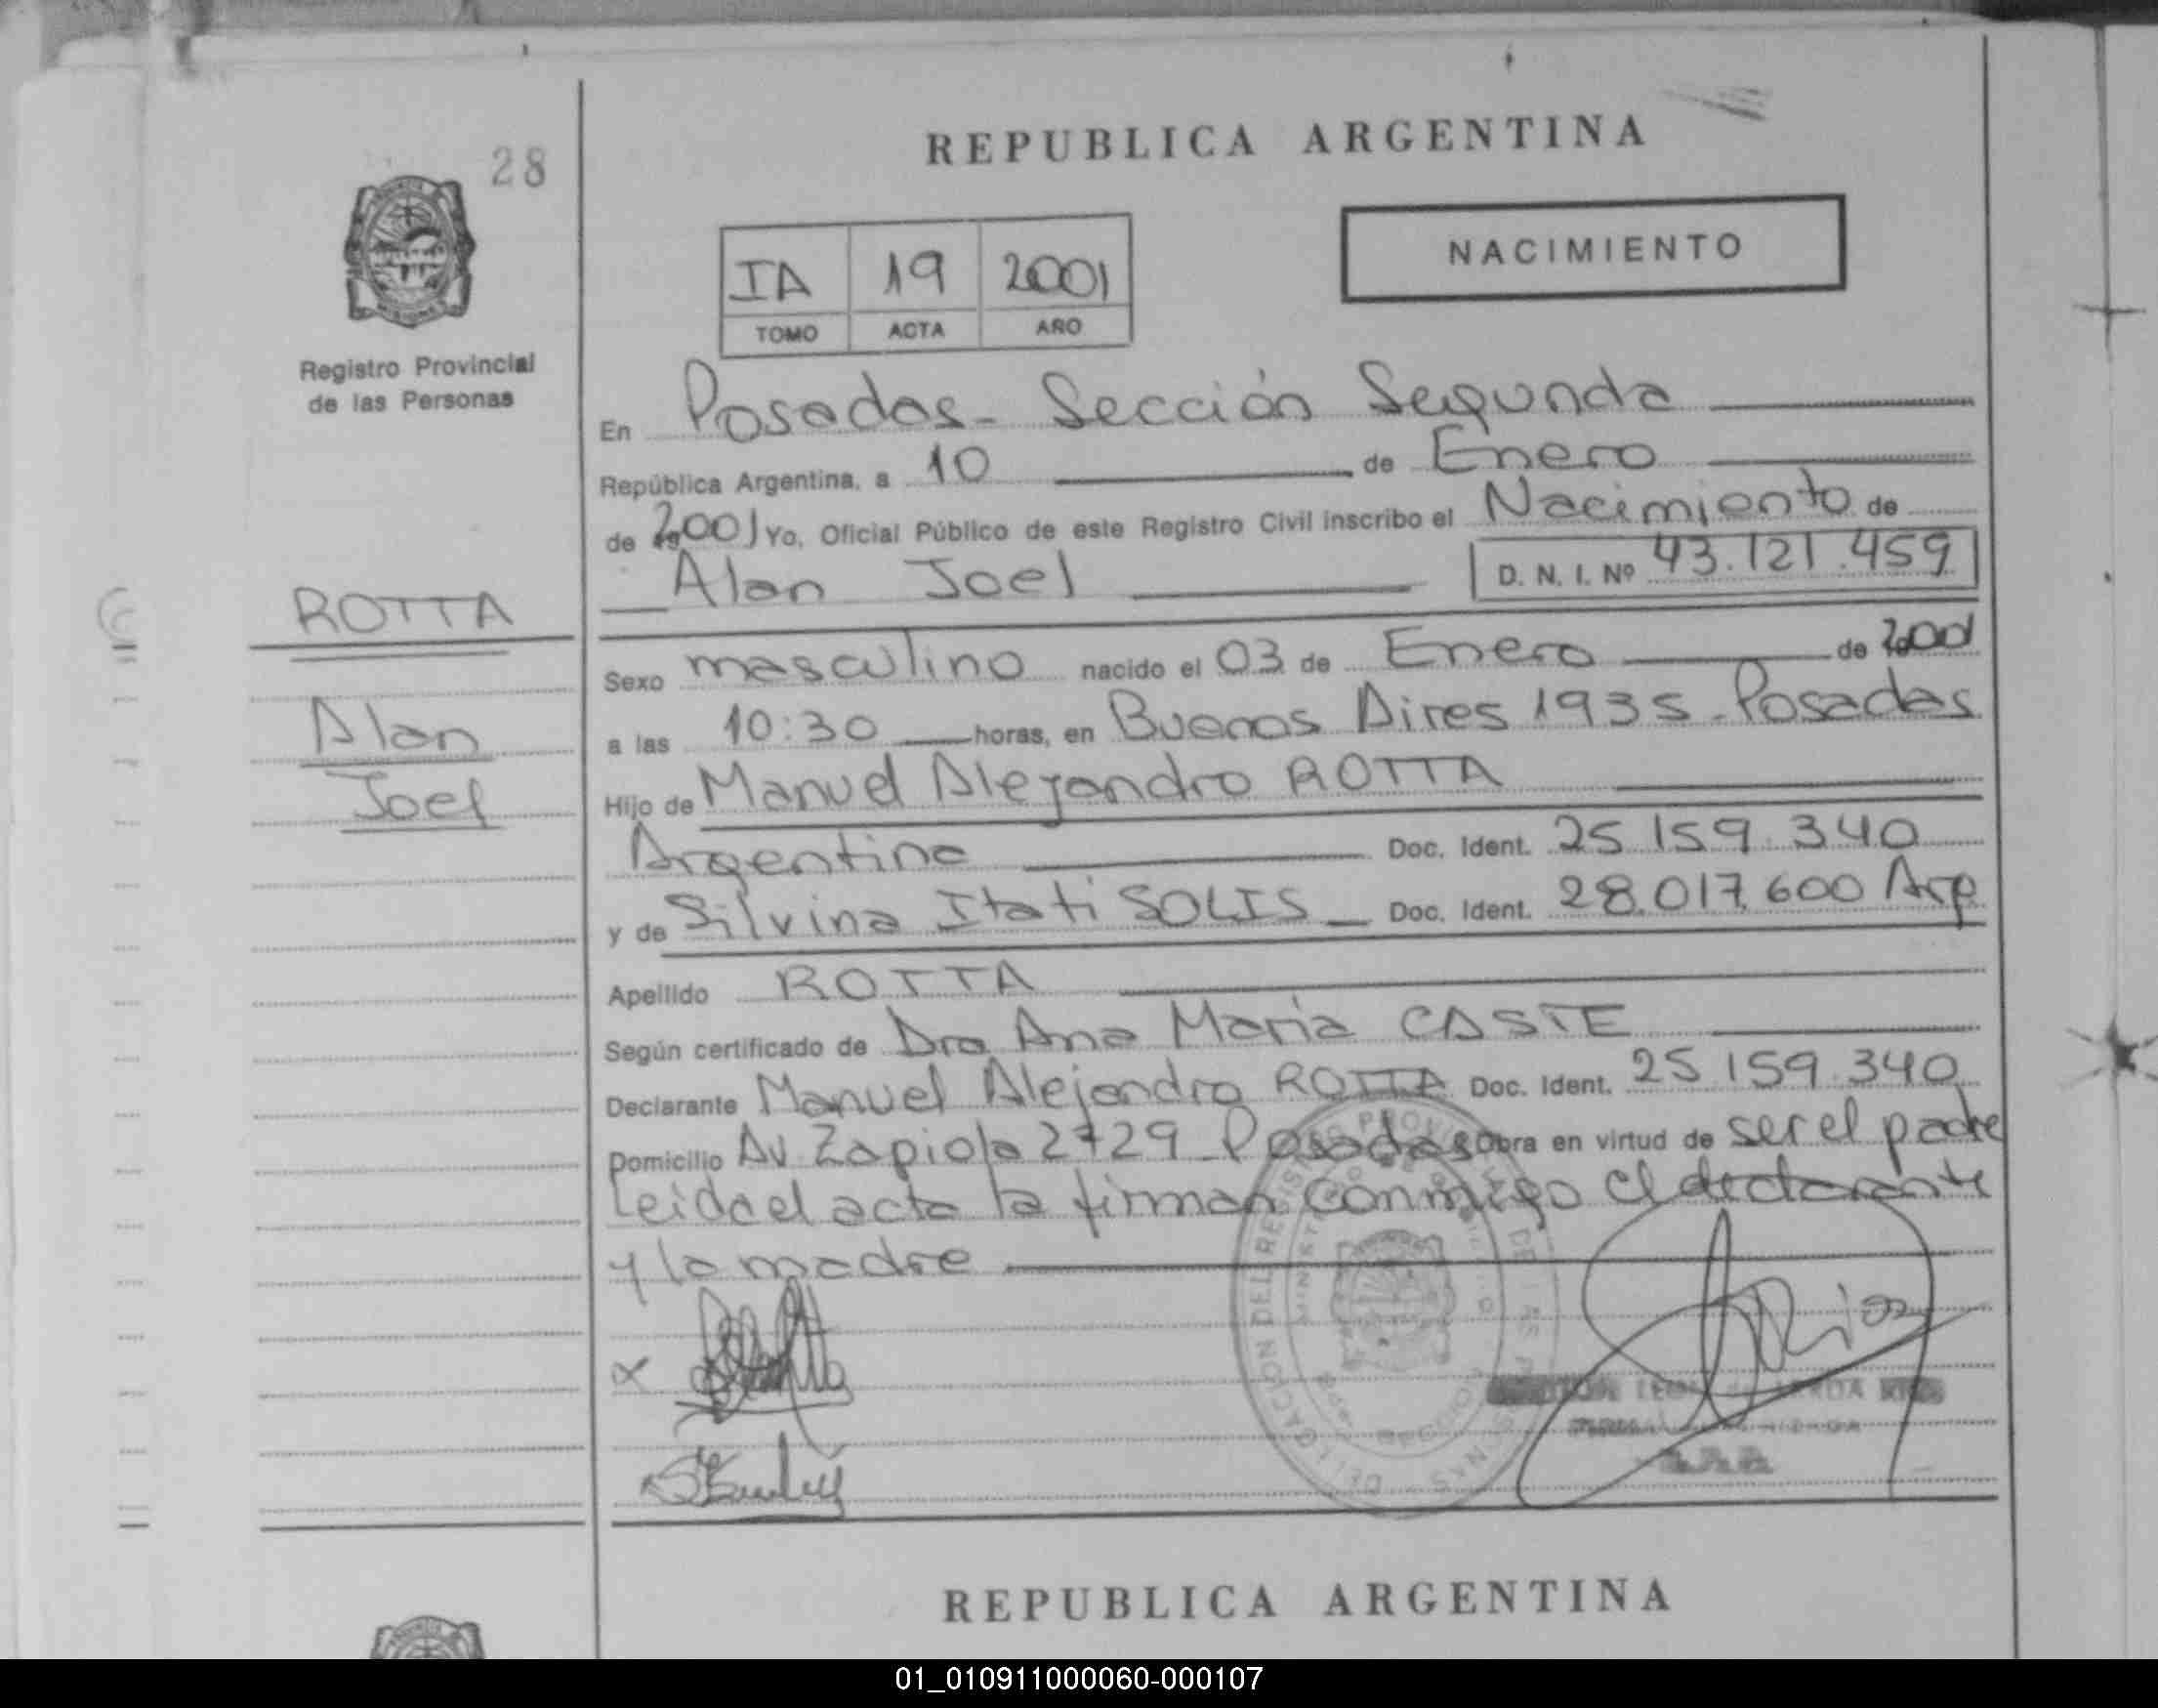 28
REPUBLICA ARGENTINA
NACIMIENTO
IA 19 2001
TOMO ACTA AÑO
Registro Provincial
de las Personas
En Posadas - Sección Segunda
República Argentina, a 10 de Enero
de 2001 Yo, Oficial Público de este Registro Civil inscribo el Nacimiento de
Alan Joel D. N. I. Nº 43.121.459
ROTTA
Alan
Joel
Sexo masculino nacido el 03 de Enero de 2001
a las 10:30 horas, en Buenos Aires 1935 - Posadas
Hijo de Manuel Alejandro ROTTA
Argentino Doc. Ident. 25.159.340
y de Silvina Itati SOLIS Doc. Ident. 28.017.600 Arg
Apellido ROTTA
Según certificado de Dra Ana María CASTE
Declarante Manuel Alejandro ROTTA Doc. Ident. 25.159.340
Domicilio Av Zapiola 2729 - Posadas Obra en virtud de ser el padre
Leida el acta la firman conmigo el declarante
y la madre
REPUBLICA ARGENTINA
01_010911000060-000107